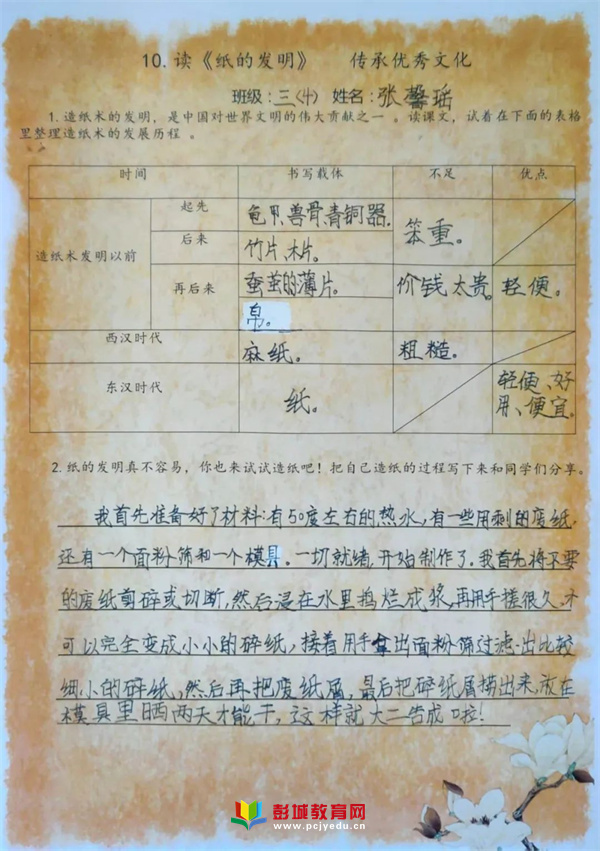 10. 读《纸的发明》 传承优秀文化
班级：三(4) 姓名：张馨瑶
1. 造纸术的发明，是中国对世界文明的伟大贡献之一 。读课文，试着在下面的表格
里整理造纸术的发展历程 。
时间 书写载体 不足 优点
造纸术发明以前 起先 龟甲、兽骨、青铜器。 笨重。
后来 竹片、木片。
再后来 蚕茧的薄片。 价钱太贵。 轻便。
帛。
西汉时代 麻纸。 粗糙。
东汉时代 纸。 轻便、好用、便宜。
2. 纸的发明真不容易，你也来试试造纸吧！把自己造纸的过程写下来和同学们分享。
我首先准备好了材料：有50度左右的热水，有一些用剩的废纸，
还有一个面粉筛和一个模具。一切就绪，开始制作了。我首先将不要
的废纸剪碎或切断，然后浸在水里捣烂成浆，再用手搓很久，才
可以完全变成小小的碎纸，接着用手拿出面粉筛过滤出比较
细小的碎纸，然后再把废纸屑，最后把碎纸屑捞出来，放在
模具里晒两天才能干，这样就大工告成啦！
彭城教育网
www.pcjyedu.cn